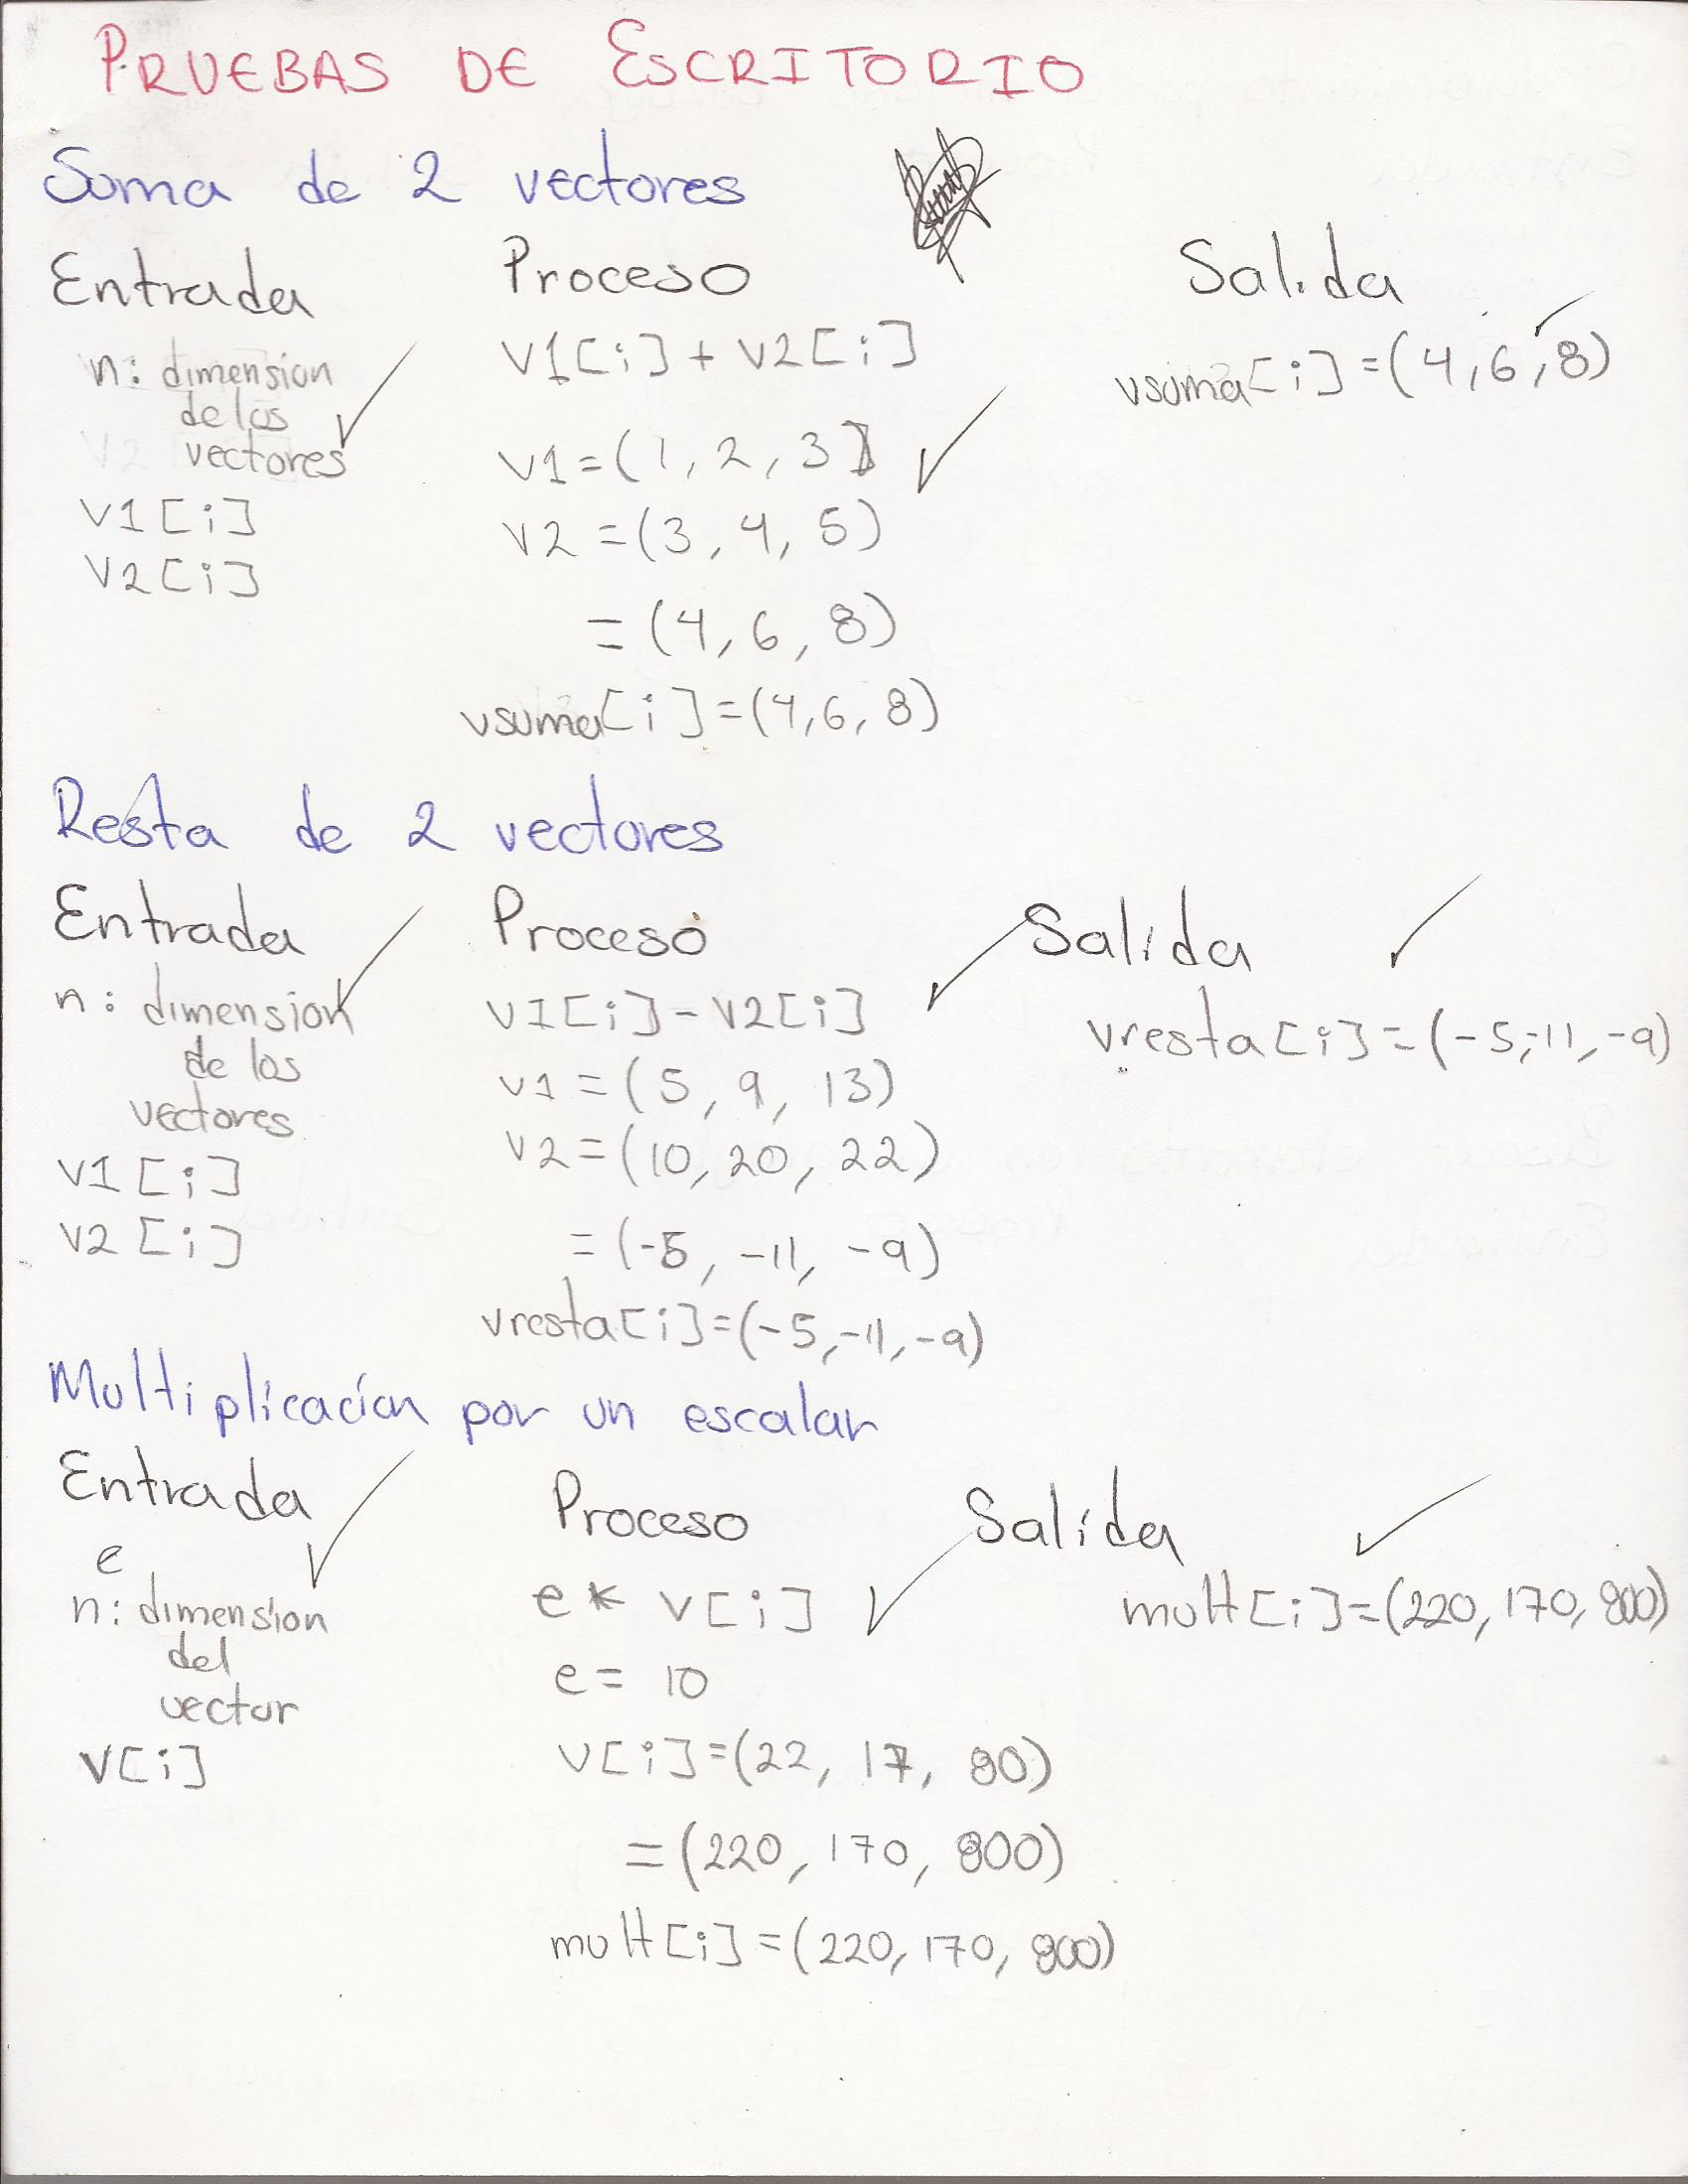 PRUEBAS DE ESCRITORIO
Suma de 2 vectores
Entrada
n: dimension
de los
vectores
V1[i]
V2[i]
Proceso
V1[i] + V2[i]
V1=(1, 2, 3)
V2 =(3, 4, 5)
= (4, 6, 8)
vsuma[i]=(4,6,8)
Salida
vsuma[i]=(4,6,8)
Resta de 2 vectores
Entrada
n: dimension
de los
vectores
V1[i]
V2[i]
Proceso
V1[i]-V2[i]
V1 =(5, 9, 13)
V2=(10, 20, 22)
=(-5, -11, -9)
vresta[i]=(-5,-11,-9)
Salida
vresta[i]=(-5,-11,-9)
Multiplicación por un escalar
Entrada
e
n: dimension
del
vector
V[i]
Proceso
e* v[i]
e= 10
V[i]=(22, 17, 80)
=(220, 170, 800)
mult[i]=(220, 170, 800)
Salida
mult[i]=(220, 170, 800)